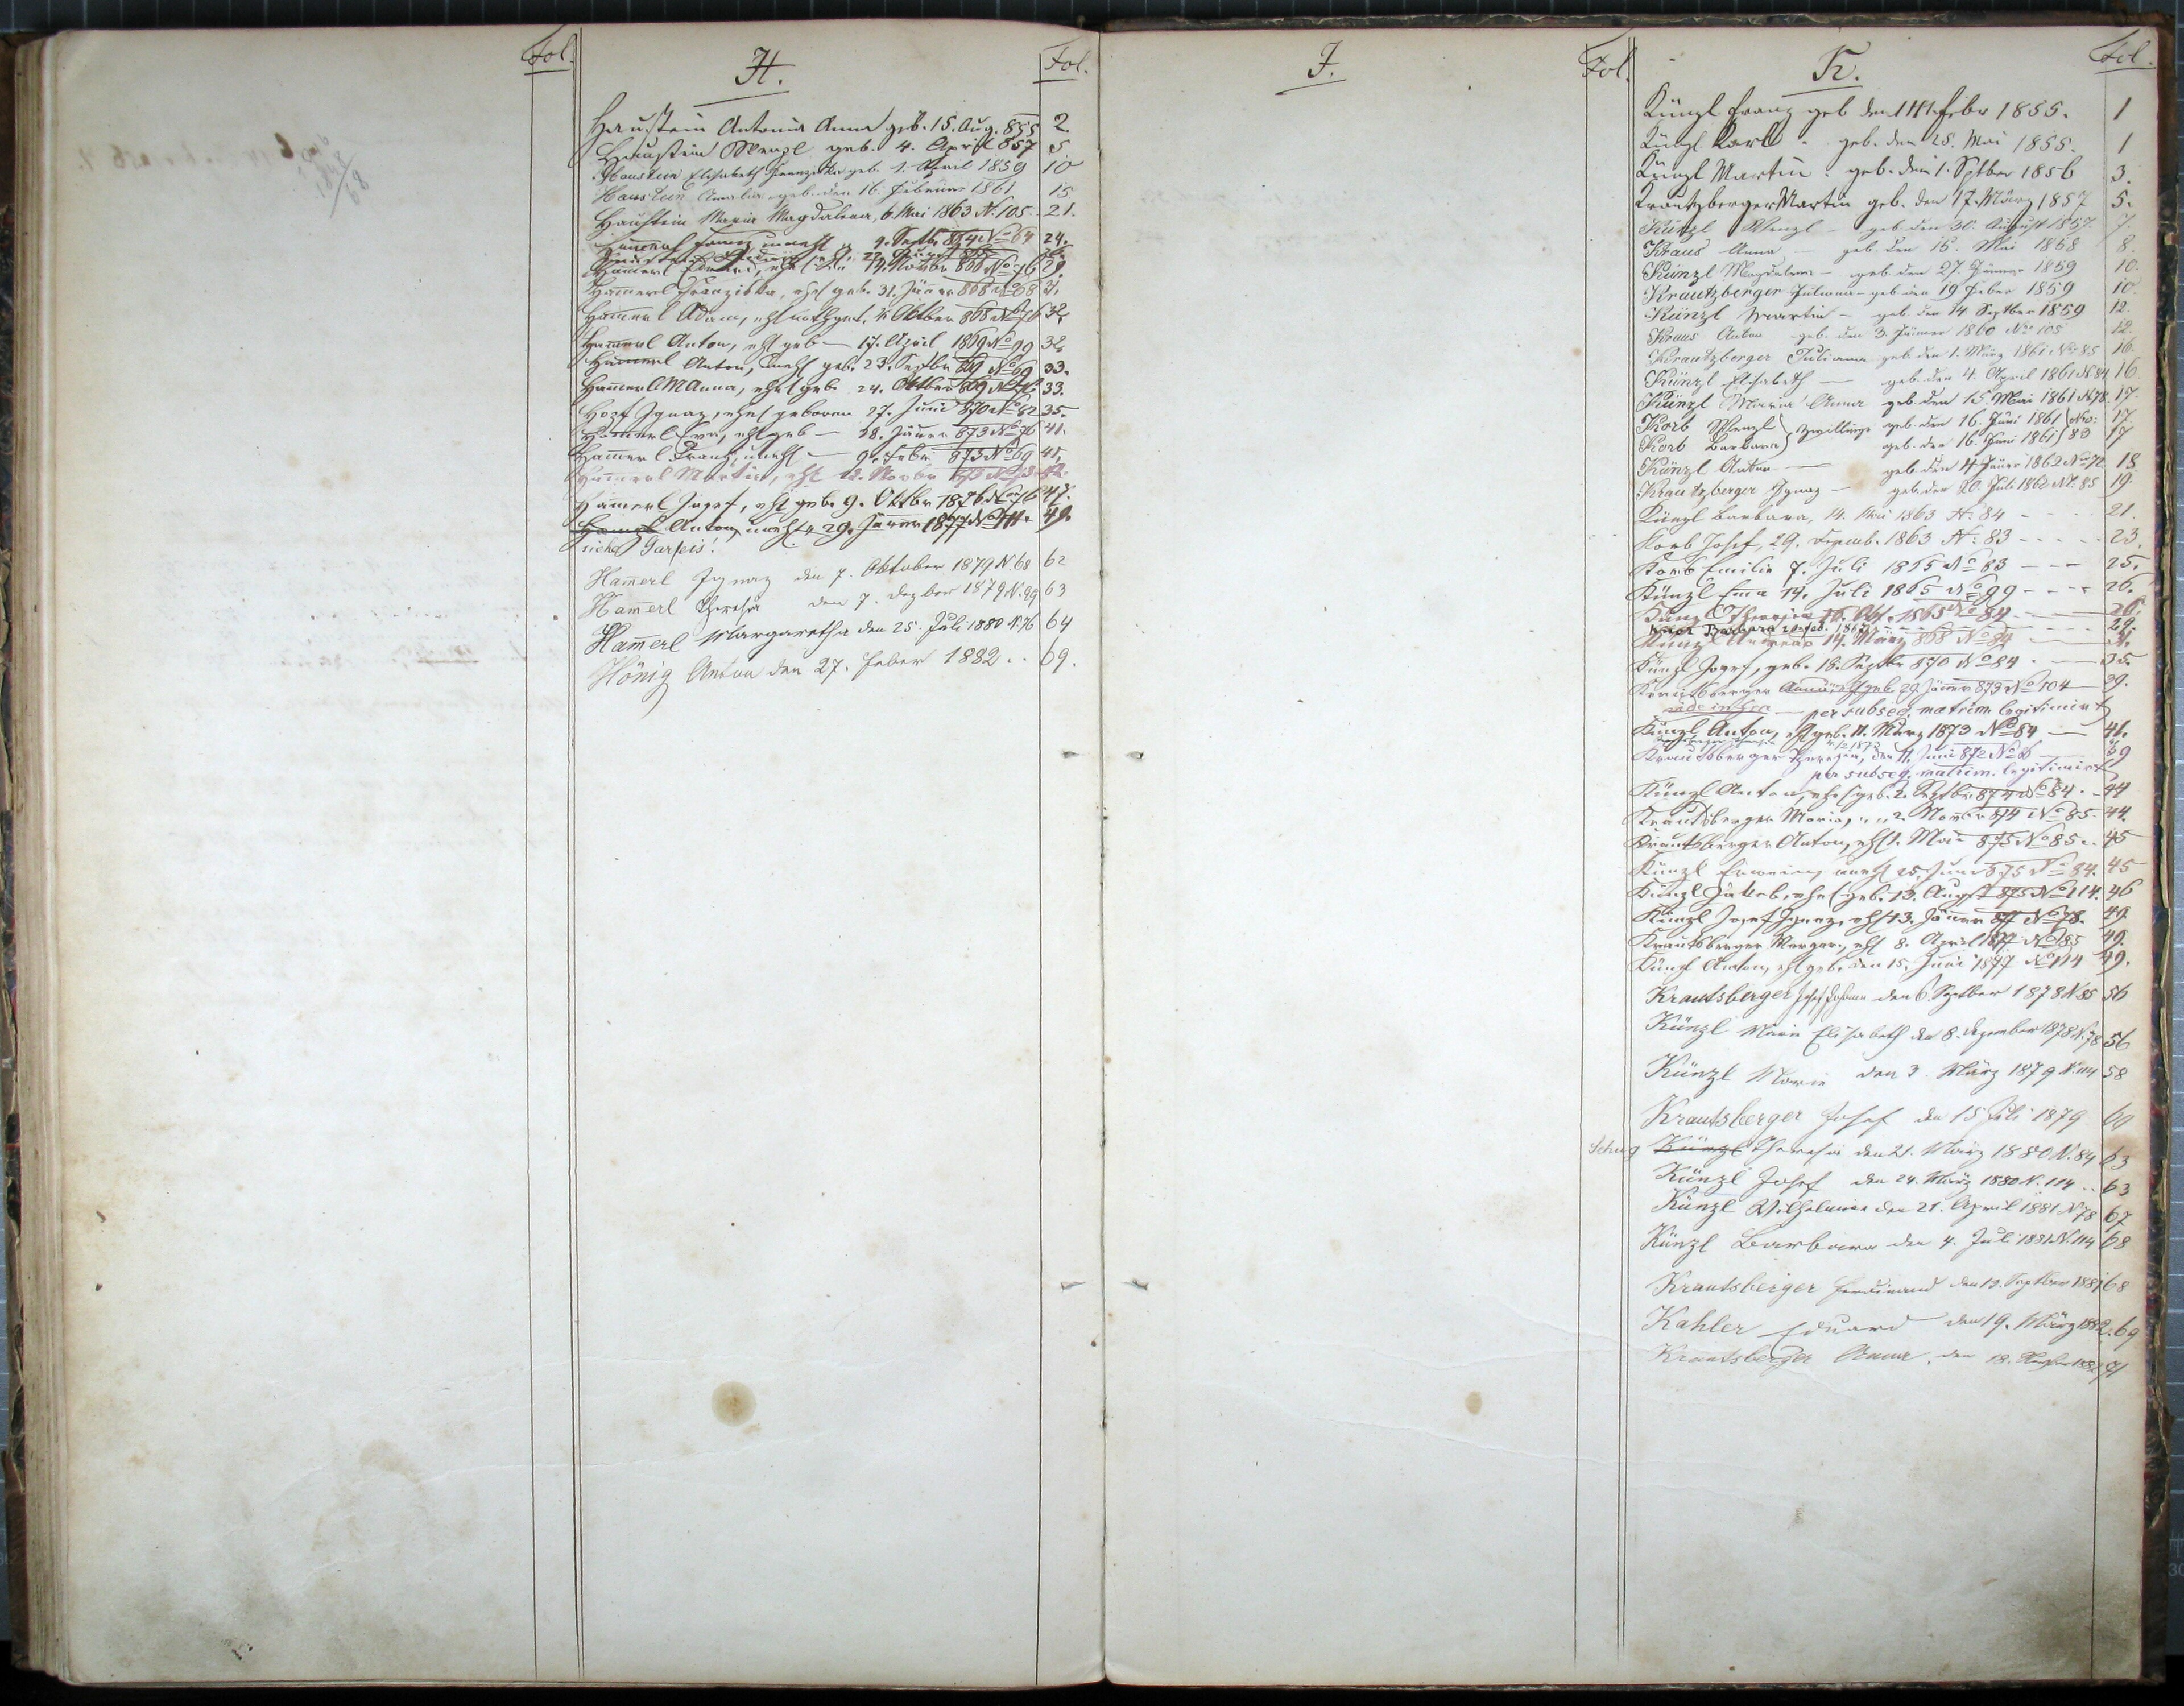 Fol.
H.
Fol.
Haustein Antonia Anna geb. 15. Aug. 855 2.
Haustein Wenzl geb. 4. April 857 5
Haustein Elisabeth Franziska geb. 1. April 1859 10
Haustein Amalia geb. den 16. Februar 1861 15
Haustein Maria Magdalena, 6. Mai 1863 N. 105. 21.
Hammerl Franz unehl 9. Septb. 864 No 69 24.
Hammerl Eduard, ehl 14. Novbr 866 No 76 29.
Hammerl Franziska, ehl geb. 31. Jäner 868 No 68 31.
Hammerl Adam, ehl 868 No 76 32.
Hammerl Anton, ehl geb — 17. April 1869 No 99 32.
Hammerl Anton, unehl geb. 23. Septbr 869 No 69 33.
Hammerl M Anna, ehel geb. 24. Oktber 869 33.
Hopf Ignaz, ehel geboren 27. Juni 870 No 82 35.
Hammerl Eva, ehl geb — 28. Jäner 873 No 76 41.
Hammerl Franz, unehl — 9. Febr 873 No 69 41.
Hammerl Martin, ehl 12. Novbr
Hammerl Josef, ehl geb. 9. Oktbr 1876 No 76 47.
Anton unehl 29. Jäner 1877 No 111. 49.
siehe Garkeis!
Hammerl Ignaz den 7. Oktober 1879 N. 68 62
Hammerl Theresia den 7. Dezber 1879 N. 99 63
Hammerl Margaretha den 25. Juli 1880 N. 76 64
Hönig Anton den 27. Feber 1882 .. 69.
J.
Fol.
K.
Fol.
Künzl Franz geb den 14. Febr 1855. 1
Künzl Karl - geb. den 25. Mai 1855. 1
Künzl Martin. geb. den 1. Sptber 1856 3.
Krautzberger Martin geb. den 17. März 1857 5.
Künzl Wenzl — geb. den 30. August 1857. 7.
Kraus Anna — geb. den 15. Mai 1858 8.
Künzl Magdalena — geb. den 27. Jänner 1859 10.
Krautzberger Juliana — geb. den 19 Feber 1859 10.
Künzl Martin — geb. den 14 Septber 1859 12.
Kraus Anton geb. den 3. Jänner 1860 No 105 12.
Krautzberger Juliana geb. den 1. März 1861 No 85 16.
Künzl Elisabeth — geb. den 4. April 1861 N 84 16
Künzl Maria Anna geb. den 15 Mai 1861 N 78. 17.
Korb Wenzl } Zwillinge geb. den 16. Juni 1861 } Nro: 17.
Korb Barbara } geb. den 16. Juni 1861 } 83 17
Künzl Anton — geb. den 4 Jäner 1862 No 72 18
Krautzberger Ignaz — geb. den 20. Juli 1862 N. 85 19.
Künzl Barbara, 14. Mai 1863 N. 84 - - - 21.
Korb Josef, 29. Dezemb. 1863 N. 83 - - - - 23.
Korb Emilie 7. Juli 1865 No 83 - - - 25.
Künzl Ema 14. Juli 1865 No 99 - - - 26.
Künzl Theresia 1865 No 84 — 26.
Barbara 29.
Künzl Andreas 14. März 868 No 84 — 31.
Künzl Josef, geb. 18. Septbr 870 No 84 . — 35.
Krautsberger ehl geb. 29. Jäner 873 No 104 — 39.
per subseq. matrim. legitimirt
Künzl Anton, ehl geb. 11. März 1873 No 84 — 41.
Krautsberger Theresia, den 11. Juni 872 39
per subseq. matrim. legitimirt
Künzl Anton, ehel geb. 2. Septbr 874 No 84. - 44
Krautsberger Maria, " " 2. Novbr 874 No 85 - 44.
Krautsberger Anton, ehl 1. Mai 875 No 85.. 45
Künzl unehl 25. Juni 875 No 84. 45
Künzl Jakob, ehel geb. 13. Augst 875 No 114. 46
Künzl Josef Ignaz, ehl 13. Jäner 877 No 78. 49.
Krautsberger Margar., ehl 8. April 1877 No 85 49.
Künzl Anton, ehl geb. den 15. Juni 1877 No 114 49.
Krautsberger Josef Johann den 6. Septber 1878 N 85 56
Künzl Maria Elisabeth den 8. Dezember 1878 N. 78 56
Künzl Maria den 3. März 1879 N. 114 58
Krautsberger Josef den 15 Juli 1879 60
Schug Künzl Theresia den 21. März 1880 N. 84 63
Künzl Josef den 24. März 1880 N. 114 .. 63
Künzl Wilhelmine den 21. April 1881 N 78 67
Künzl Barbara den 4. Juli 1881 N. 114 68
Krautsberger Ferdinand den 13. Septber 1881 68
Kahler Eduard den 19. März 1882. 69
Krautsberger Anna, den 18. 1882 71